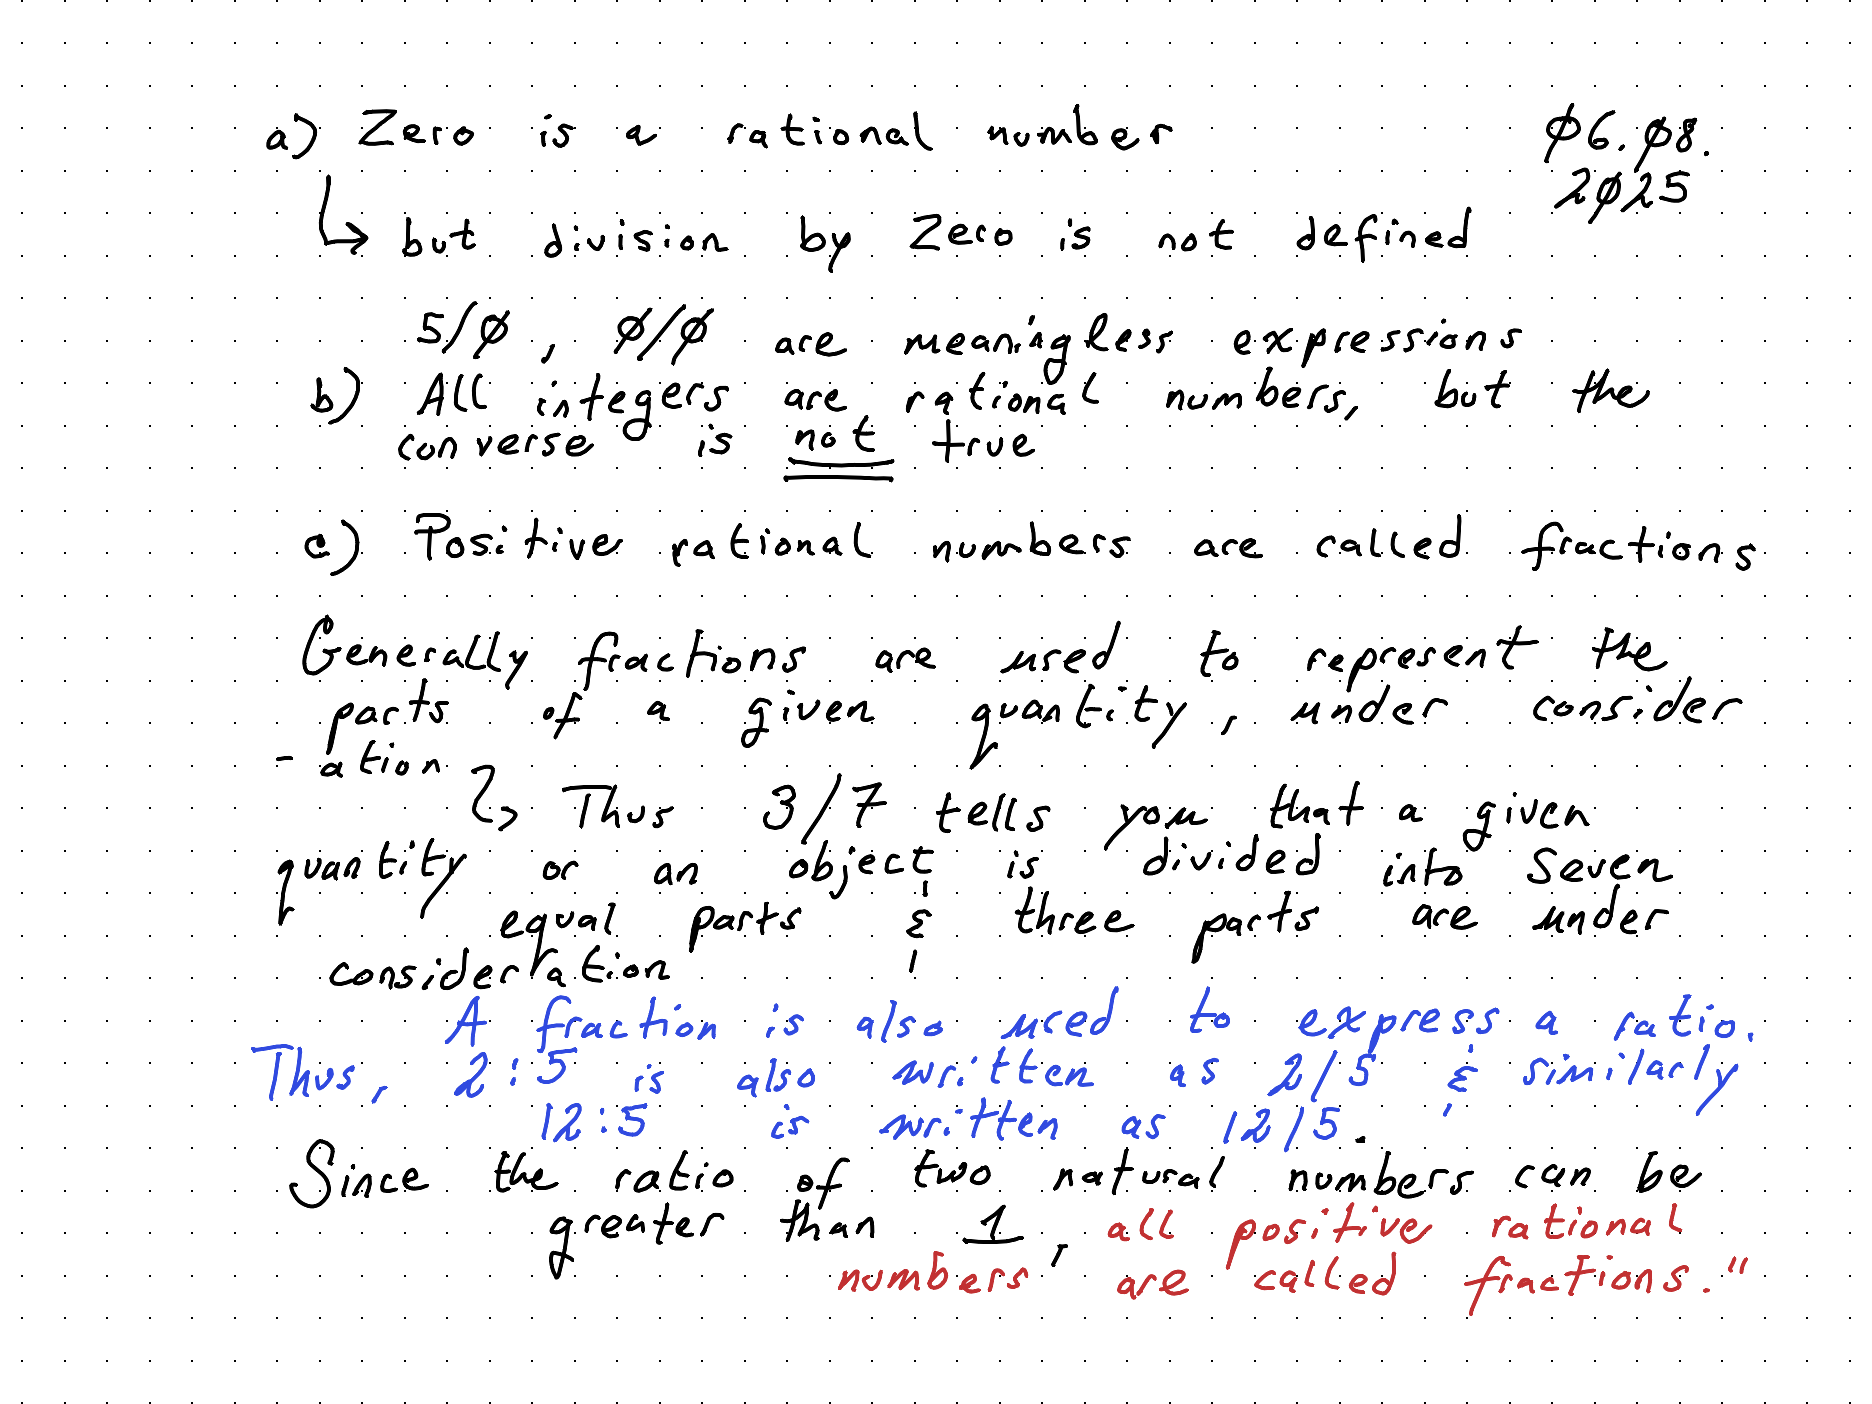 a) Zero is a rational number
Ø6.Ø8.
2Ø25
↳ but division by Zero is not defined
5/Ø, Ø/Ø are meaningless expressions
b) All integers are rational numbers, but the
converse is not true
c) Positive rational numbers are called fractions
Generally fractions are used to represent the
parts of a given quantity, under consider
- ation
↳ Thus 3/7 tells you that a given
quantity or an object is divided into Seven
equal parts & three parts are under
consideration
A fraction is also used to express a ratio.
Thus, 2:5 is also written as 2/5 & similarly
12:5 is written as 12/5.
Since the ratio of two natural numbers can be
greater than 1, all positive rational
numbers are called fractions."